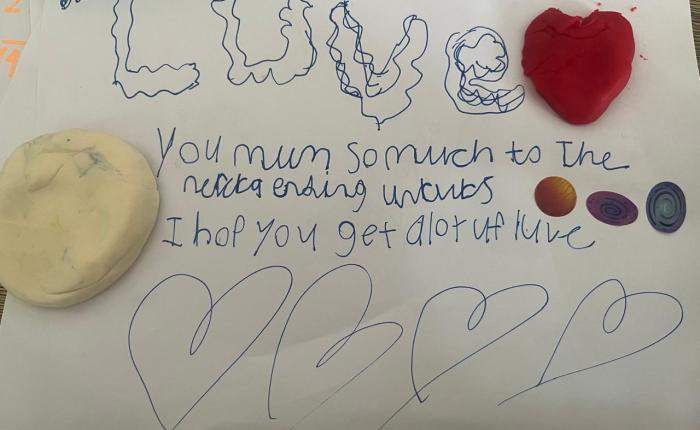 Love
You mum so much to the
nefcka ending unvcubs
I hop you get alot uf luve